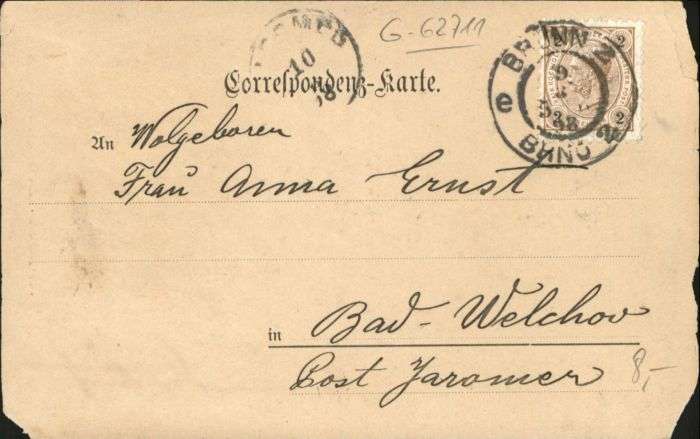 G-62711
BRÜNN 2
BRNO 2
2
2
10
Correspondenz-Karte.
An Wolgeboren
Frau Anna Ernst
in Bad-Welchov
Post Jaromer
8,-